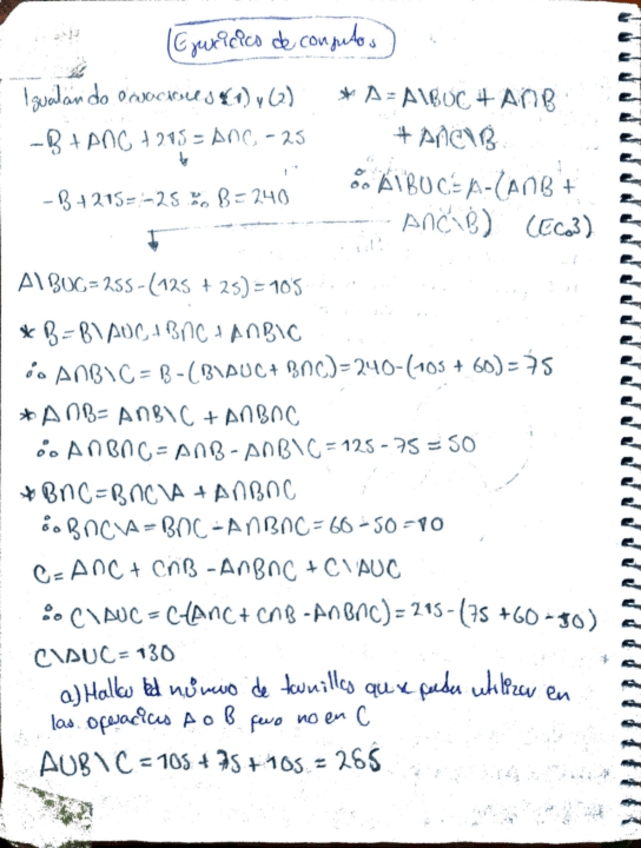 Ejercicios de conjuntos
Igualando ecuaciones (1) y (2)
-B + A∩C + 215 = A∩C - 25
-B + 215 = -25 ∴ B = 240
* A = A\BUC + A∩B
+ A∩C\B
∴ A\BUC = A - (A∩B +
A∩C\B) (Ec.3)
A\BUC = 255 - (125 + 25) = 105
* B = B\AUC + B∩C + A∩B\C
∴ A∩B\C = B - (B\AUC + B∩C) = 240 - (105 + 60) = 75
* A∩B = A∩B\C + A∩B∩C
∴ A∩B∩C = A∩B - A∩B\C = 125 - 75 = 50
* B∩C = B∩C\A + A∩B∩C
∴ B∩C\A = B∩C - A∩B∩C = 60 - 50 = 10
C = A∩C + C∩B - A∩B∩C + C\AUC
∴ C\AUC = C-(A∩C + C∩B - A∩B∩C) = 215 - (75 + 60 - 50)
C\AUC = 130
a) Hallar el número de tornillos que se pueden utilizar en
las operaciones A o B pero no en C
AUB\C = 105 + 75 + 105 = 285